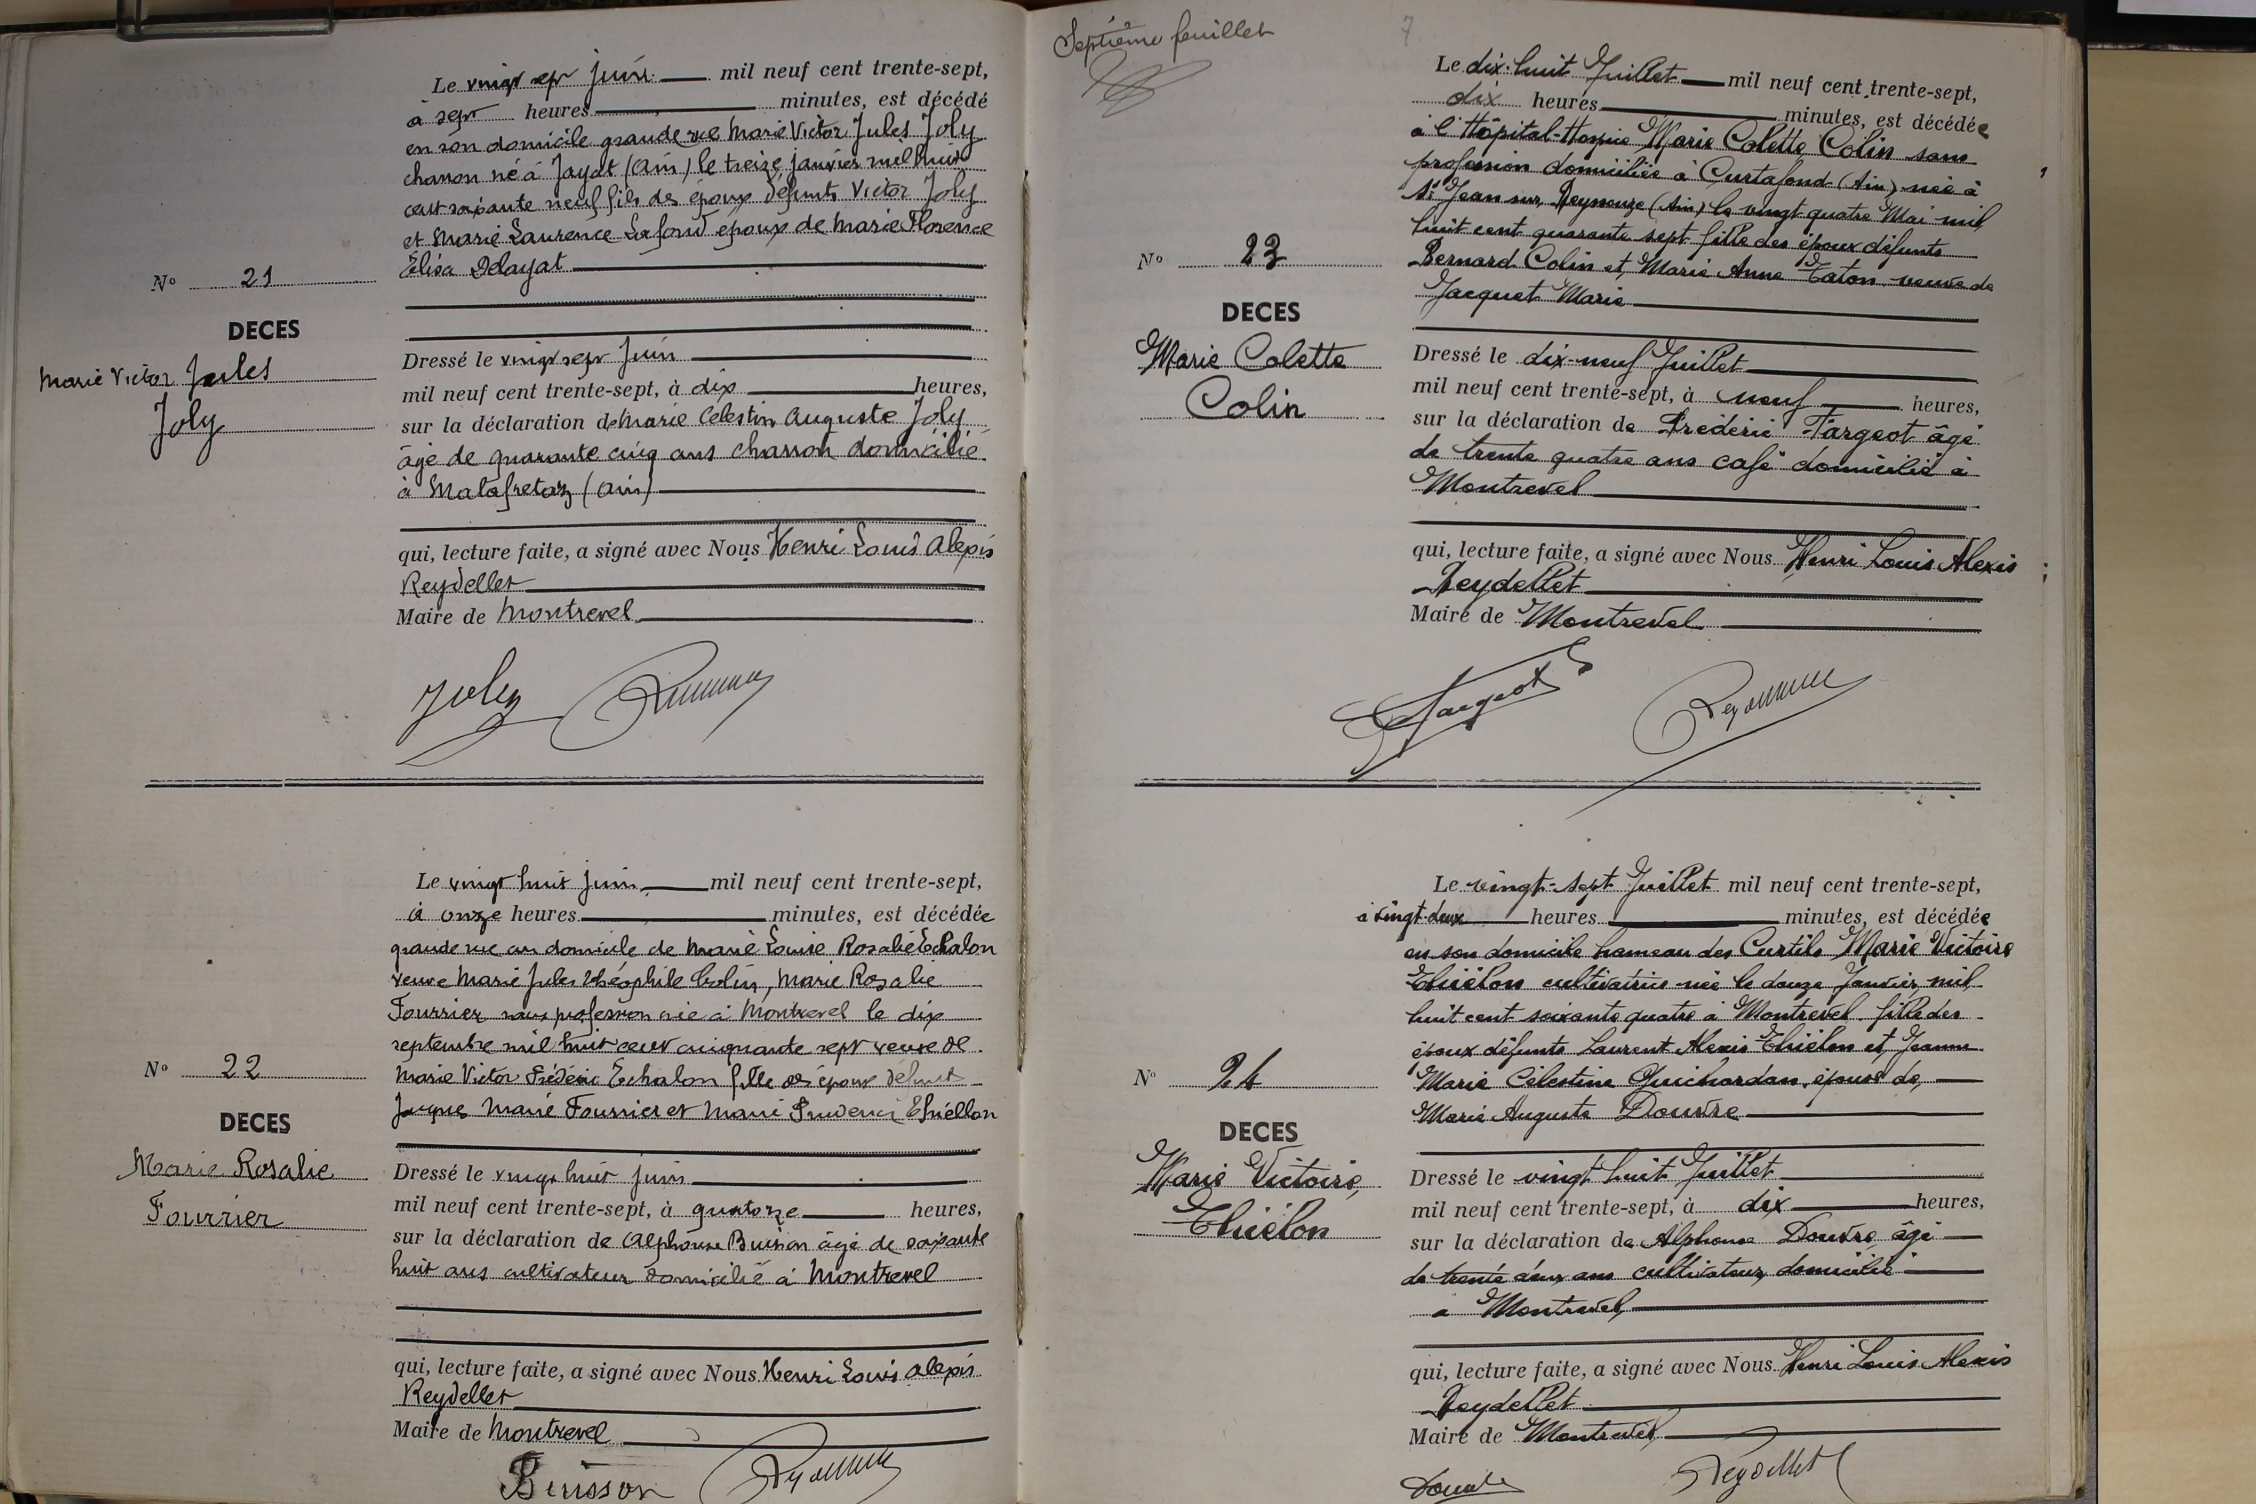 Le vingt sept juin mil neuf cent trente-sept,
à sept heures minutes, est décédé
en son domicile grande rue Marie Victor Jules Joly
charron né à Jayat (Ain) le treize janvier mil huit
cent soixante neuf fils des époux défunts Victor Joly
et Marie Laurence Lafond époux de Marie Florence
Élisa Delayat
No 21
DECES
Marie Victor Jules
Joly
Dressé le vingt sept juin
mil neuf cent trente-sept, à dix heures,
sur la déclaration de Marie Célestin Auguste Joly
âgé de quarante cinq ans charron domicilié
à Malafretaz (Ain)
qui, lecture faite, a signé avec Nous Henri Louis Alexis
Reydellet
Maire de Montrevel
Joly
Le vingt huit juin mil neuf cent trente-sept,
à onze heures minutes, est décédée
grande rue au domicile de Marie Louise Rosalie Echalon
veuve Marie Jules Théophile Colin, Marie Rosalie
Fourrier sans profession née à Montrevel le dix
septembre mil huit cent cinquante sept veuve de
Marie Victor Frédéric Echalon fille des époux défunts
Jacques Marie Fourrier et Marie Prudence Thiéllon
No 22
DECES
Marie Rosalie
Fourrier
Dressé le vingt huit juin
mil neuf cent trente-sept, à quatorze heures,
sur la déclaration de Alphonse Buisson âgé de soixante
huit ans cultivateur domicilié à Montrevel
qui, lecture faite, a signé avec Nous Henri Louis Alexis
Reydellet
Maire de Montrevel
Buisson
Septième feuillet
7
Le dix-huit Juillet mil neuf cent trente-sept,
dix heures minutes, est décédée
à l'Hôpital-Hospice Marie Colette Colin sans
profession domiciliée à Curtafond (Ain) née à
St Jean sur Reyssouze (Ain) le vingt quatre Mai mil
huit cent quarante sept fille des époux défunts
Bernard Colin et Marie Anne Taton veuve de
Jacquet Marie
No 23
DECES
Marie Colette
Colin
Dressé le dix-neuf Juillet
mil neuf cent trente-sept, à neuf heures,
sur la déclaration de Frédéric Fargeot âgé
de trente quatre ans café domicilié à
Montrevel
qui, lecture faite, a signé avec Nous Henri Louis Alexis
Reydellet
Maire de Montrevel
Fargeot
Le vingt-sept Juillet mil neuf cent trente-sept,
à vingt-deux heures minutes, est décédée
en son domicile hameau des Curtils Marie Victoire
Thiélon cultivatrice née le douze Janvier mil
huit cent soixante quatre à Montrevel fille des
époux défunts Laurent Alexis Thiélon et Jeanne
Marie Célestine Guichardan épouse de
Marie Auguste Douvre
No 24
DECES
Marie Victoire
Thiélon
Dressé le vingt huit Juillet
mil neuf cent trente-sept, à dix heures,
sur la déclaration de Alphonse Douvre âgé
de trente deux ans cultivateur domicilié
à Montrevel
qui, lecture faite, a signé avec Nous Henri Louis Alexis
Reydellet
Maire de Montrevel
Reydellet